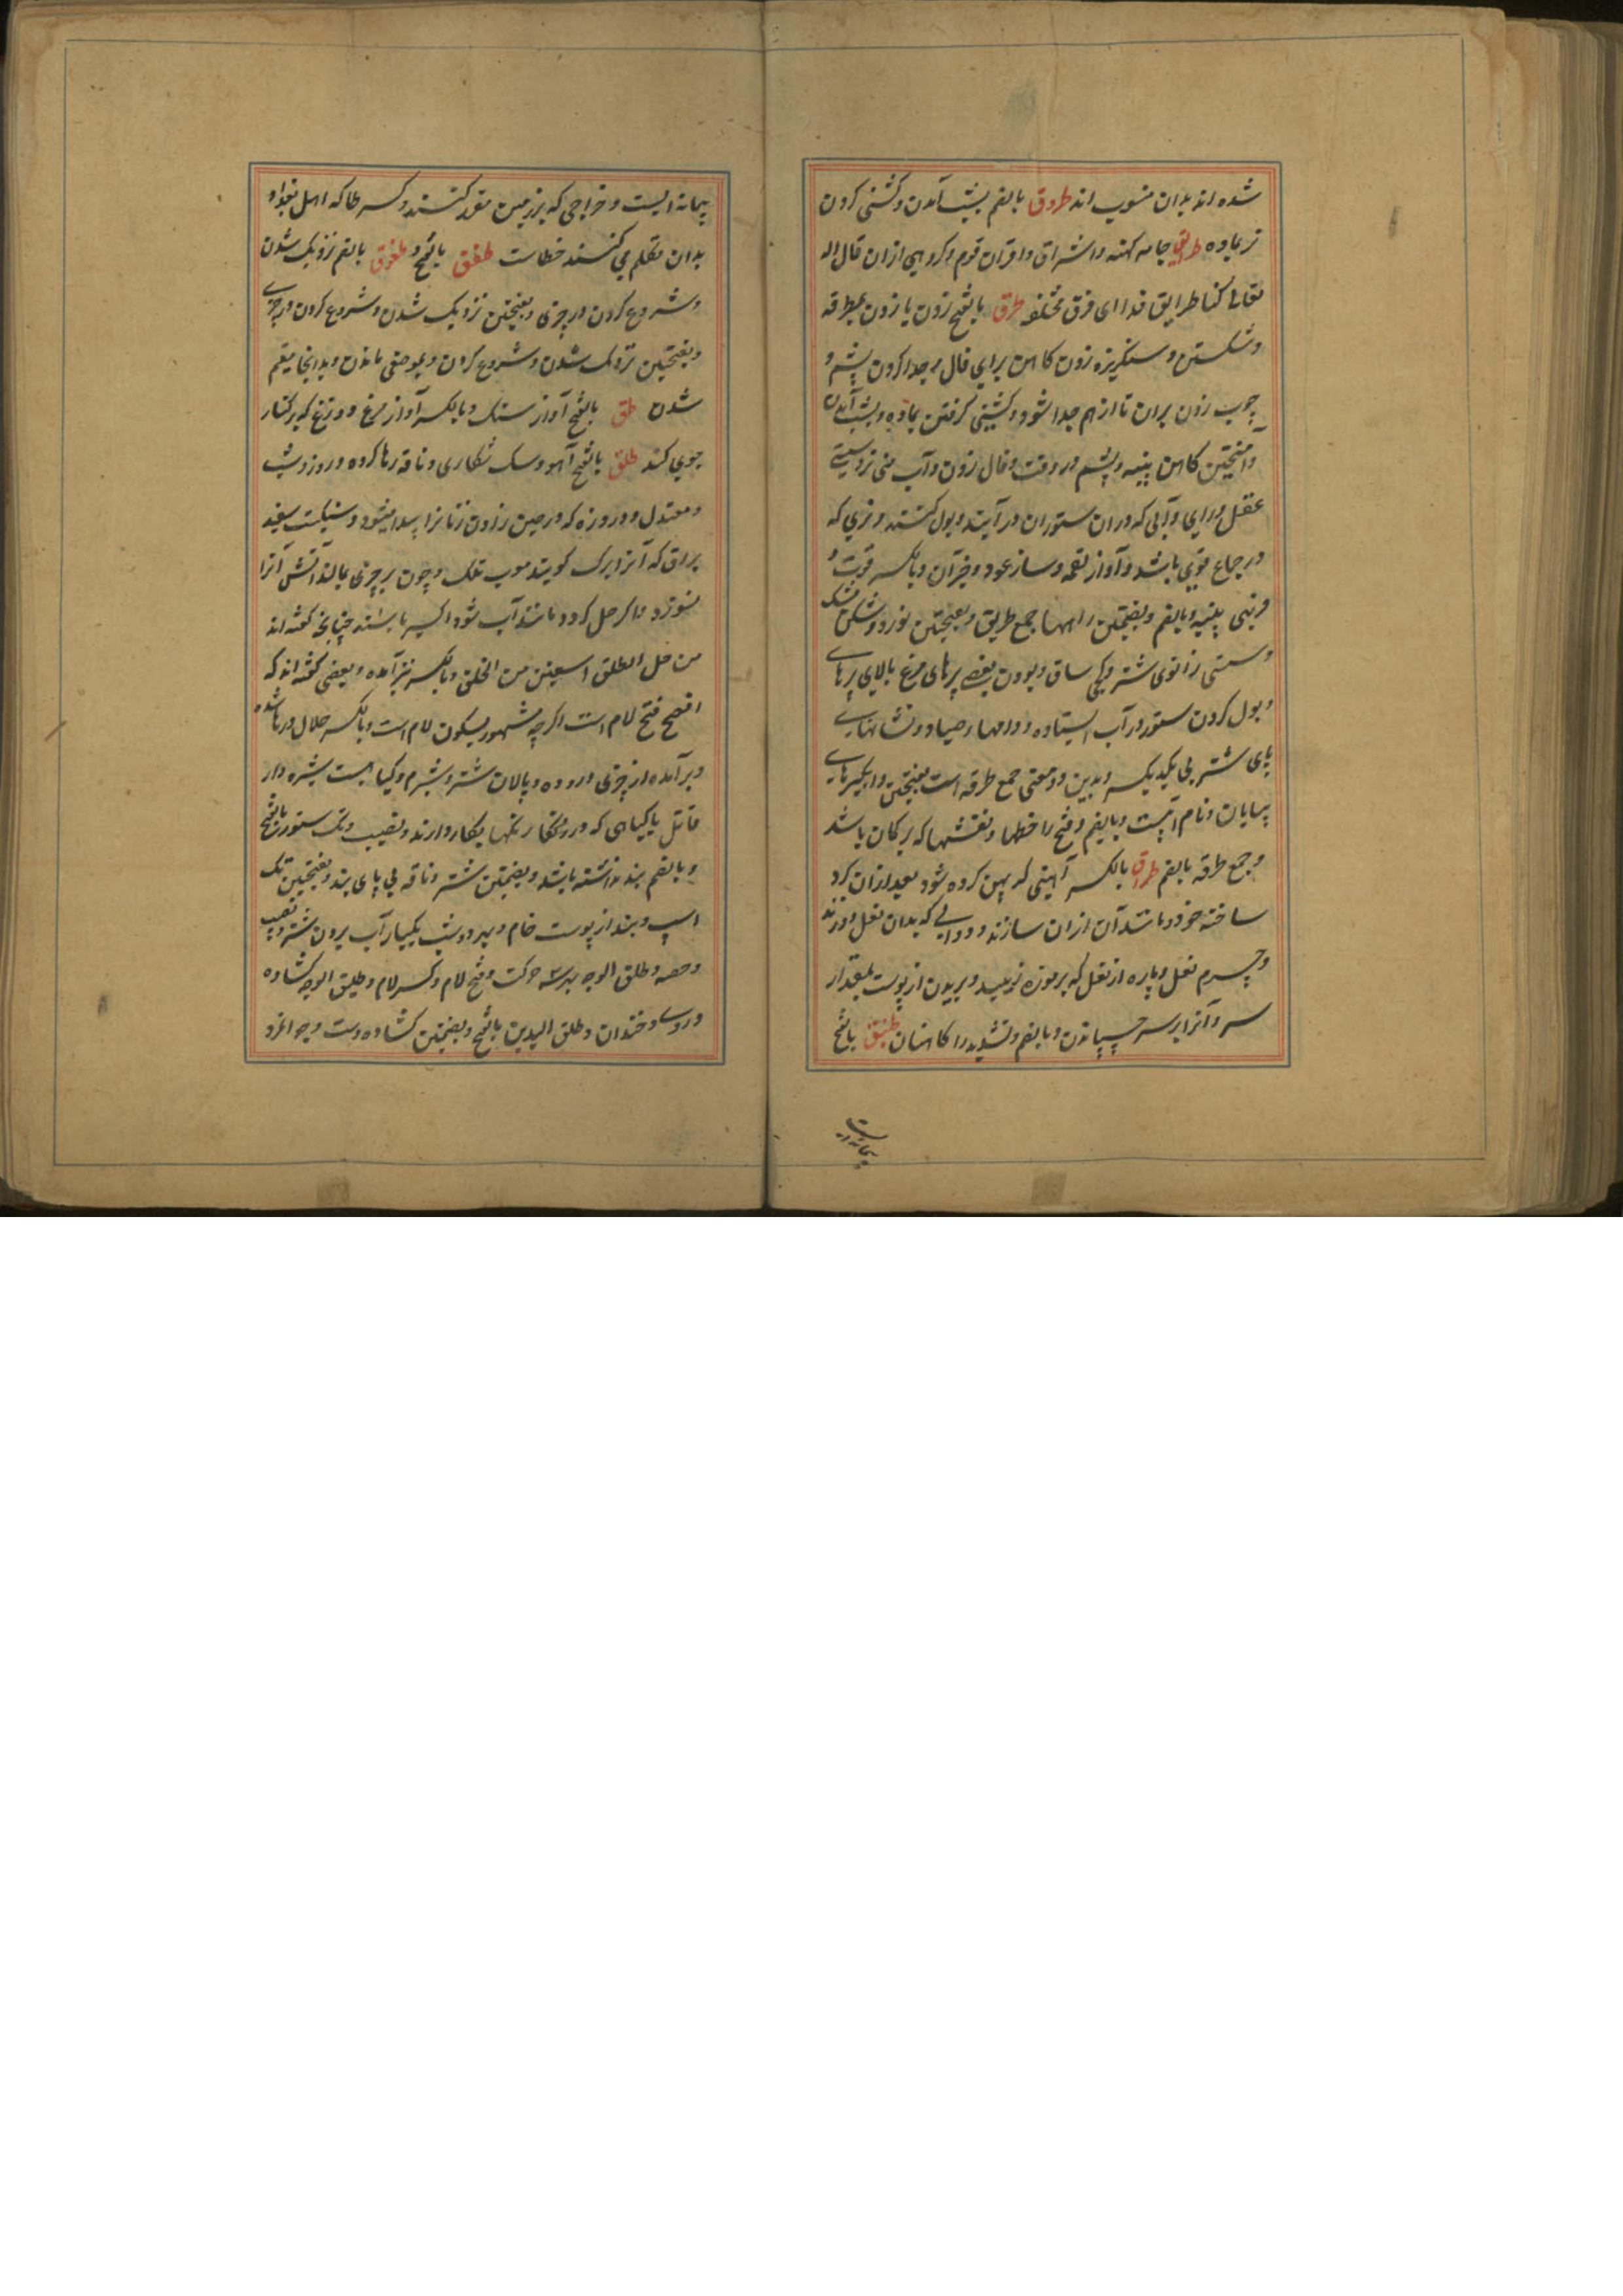 شده اند بدان منسوب اند طروق بالضم بشب آمدن و گشنی کردن
نر بماده طرایق جامه کهنه و اشراق و اقران قوم و کروهی ازان قال الله
تعالی کنا طرایق قددا ای فرق مختلفه طرق بالفتح زدن یا زدن بمطرقه
و شکستن و سنکریزه زدن کاهن برای فال و جدا کردن پشم و
چوب زدن بران تا از هم جدا شود و کشنی کرفتن بماده و بشب آمدن
و آمیختن کاهن پنبه و پشم در وقت فال زدن و آب منی نر و سستی
عقل و رای و آبی که دران ستوران در آیند و بول کنند و نری که
در جماع قوی باشد و آواز نغمه و ساز عود و جز آن و بالکسر قوت و
فربهی پنبه و بالضم و بضمتین راهها جمع طریق و بفتحتین نورد و شکن مشک
و سستی زانوی شتر و کجی ساق و بودن بعضی پرهای مرغ بالای پرهای
و بول کردن ستور در آب ایستاده و دامهای صیاد و نشانهای
پای شتر پی یکدیکر و بدین دو معنی جمع طرقه است بفتحتین و آبکیرهای
بیابان و نام آبیست و بالضم و فتح را خطها و نقشها که بر کمان باشد
و جمع طرقه بالضم طراق بالکسر آهنی که پهن کرده شود بعد ازان کرد
ساخته خود و مانند آن ازان سازند و دوالی که بدان نعل دوزند
و چرم نعل و پاره از نعل که بر موزه زنند و بریدن از پوست بمقدار
سپر و آنرا بر سپر چسپاندن و بالضم و تشدید را کاهنان طسق بالفتح
پیمانه ایست
پیمانه ایست و خراجی که بر زمین مقرر کنند و کسر طا که اهل بغداد
بدان تکلم می کنند خطاست طفق بالفتح و طفوق بالضم نزدیک شدن
و شروع کردن در چیزی و بفتحتین نزدیک شدن و شروع کردن در چیزی
و بفتحتین نزدیک شدن و شروع کردن و بموضعی ماندن و بدانجا مقیم
شدن طق بالفتح آواز سنک و بالکسر آواز مرغ و وزغ که بر کنار
جوی کند طلق بالفتح آهو و سک شکاری و ناقه رها کرده و روز و شب
و معتدل و درد زه که در حین زادن زنانرا پیدا میشود و سنکیست سفید
براق که آنرا ابرک کویند معرب تلک و چون بر چیزی بمالند آتش آنرا
نسوزد و اکر حل کرده مانند آب شود اکسیر باشد چنانچه کفته اند
من حل الطلق استغنی من الخلق و بالکسر نیز آمده و بعضی کفته اند که
افصح فتح لام است اکرچه مشهور بسکون لام است و بالکسر حلال و رها شده
و بر آمده از چیزی و روده و پالان شتر و شبرم و کیاهیست شیره دار
قاتل یا کیاهی که در رنکها بکار دارند و نصیب و تک ستوران بالفتح
و بالضم بند نداشته باشد و بضمتین شتر و ناقه بی پای بند و بفتحتین تک
اسپ و بند از پوست خام و سیر دو شب یکبار آب برون شتر و نصیب
و حصه و طلق الوجه بهر سه حرکت و فتح لام و کسر لام و طلیق الوجه کشاده
روی و خندان و طلق الیدین بالفتح و بضمتین کشاده دست و جوانمرد